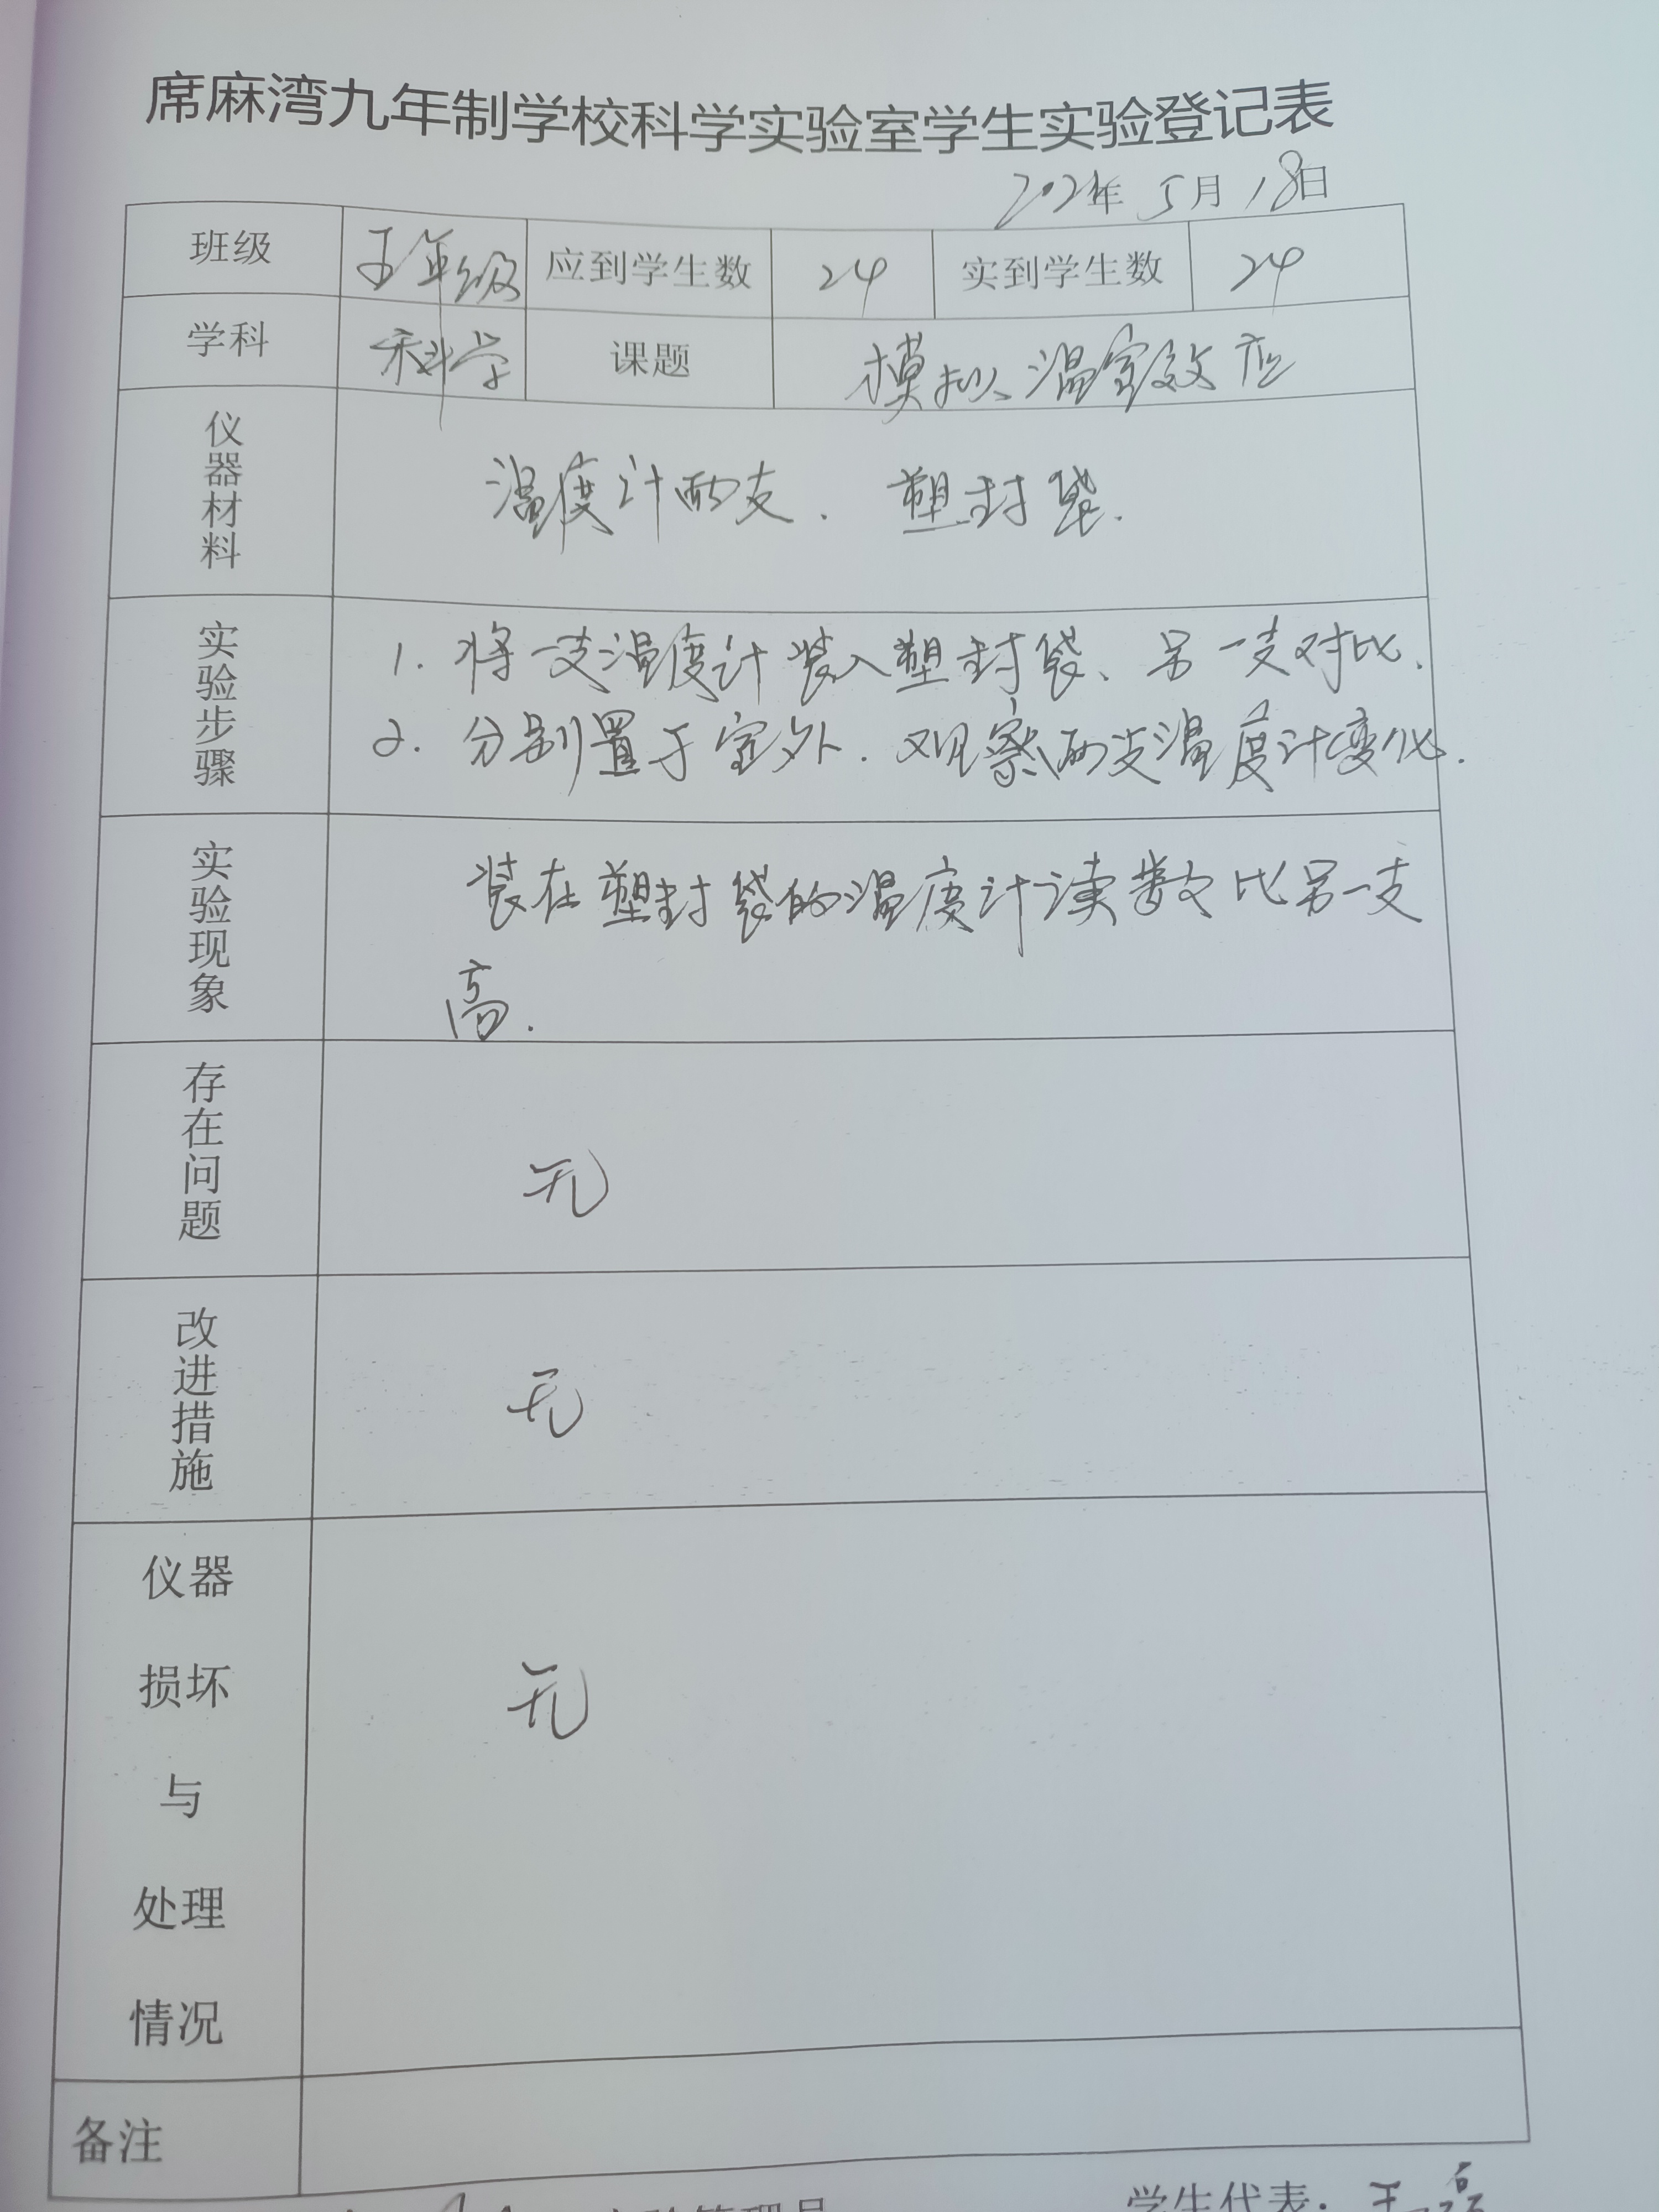 席麻湾九年制学校科学实验室学生实验登记表
2021年 5月 18日
班级 五年级 应到学生数 24 实到学生数 24
学科 科学 课题 模拟温室效应
仪器材料 温度计两支. 塑封袋.
实验步骤 1. 将一支温度计装入塑封袋、另一支对比.
2. 分别置于室外. 观察两支温度计变化.
实验现象 装在塑封袋的温度计读数比另一支
高.
存在问题 无
改进措施 无
仪器
损坏 无
与
处理
情况
备注
学生代表: 王磊